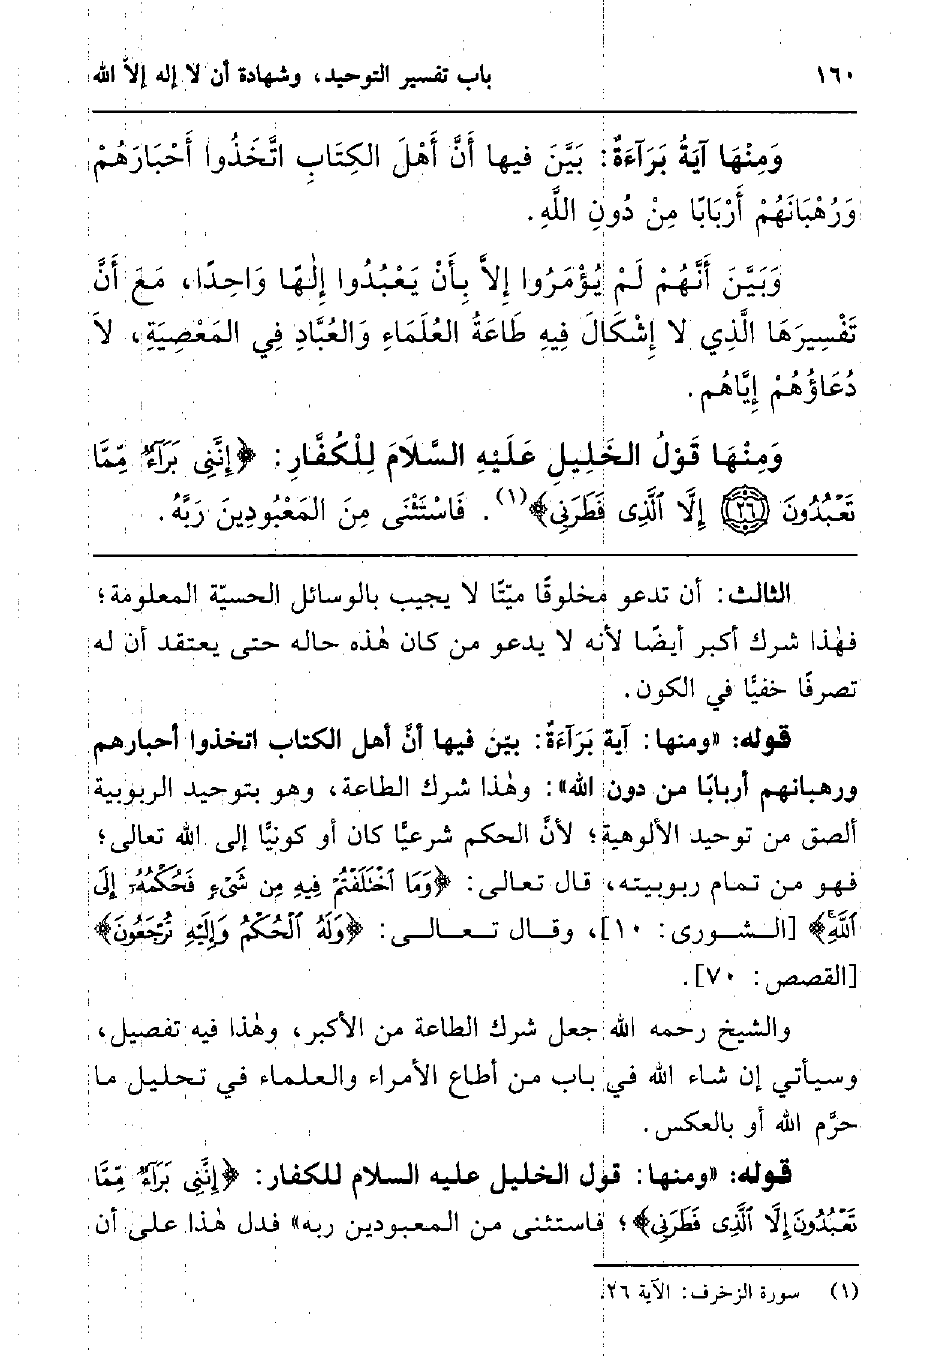 ١٦٠ باب تفسير التوحيد، وشهادة أن لا إله إلاَّ الله
وَمِنْهَا آيَةُ بَرَآءَةٌ: بَيَّنَ فيها أَنَّ أَهْلَ الكِتَابِ اتَّخَذُوا أَحْبَارَهُمْ
وَرُهْبَانَهُمْ أَرْبَابًا مِنْ دُونِ اللَّهِ.
وَبَيَّنَ أَنَّهُمْ لَمْ يُؤْمَرُوا إِلاَّ بِأَنْ يَعْبُدُوا إِلٰهًا وَاحِدًا، مَعَ أَنَّ
تَفْسِيرَهَا الَّذِي لا إِشْكَالَ فِيهِ طَاعَةُ العُلَمَاءِ وَالعُبَّادِ فِي المَعْصِيَةِ، لاَ
دُعَاؤُهُمْ إِيَّاهُم.
وَمِنْهَا قَوْلُ الخَلِيلِ عَلَيْهِ السَّلاَمَ لِلْكُفَّارِ: ﴿إِنَّنِي بَرَآءٌ مِّمَّا
تَعْبُدُونَ ﴿٢٦﴾ إِلَّا ٱلَّذِى فَطَرَنِي﴾(١). فَاسْتَثْنَى مِنَ المَعْبُودِينَ رَبَّهُ.
الثالث: أن تدعو مخلوقًا ميّتًا لا يجيب بالوسائل الحسيّة المعلومة؛
فهٰذا شرك أكبر أيضًا لأنه لا يدعو من كان هٰذه حاله حتى يعتقد أن له
تصرفًا خفيًّا في الكون.
قوله: «ومنها: آية بَرَآءَةٌ: بيّن فيها أنَّ أهل الكتاب اتخذوا أحبارهم
ورهبانهم أربابًا من دون الله»: وهٰذا شرك الطاعة، وهو بتوحيد الربوبية
ألصق من توحيد الألوهية؛ لأنَّ الحكم شرعيًّا كان أو كونيًّا إلى الله تعالى؛
فهو من تمام ربوبيته، قال تعالى: ﴿وَمَا ٱخْتَلَفْتُمْ فِيهِ مِن شَىْءٍ فَحُكْمُهُۥٓ إِلَى
ٱللَّهِۚ﴾ [الـشـورى: ١٠]، وقـال تـعـالـى: ﴿وَلَهُ ٱلْحُكْمُ وَإِلَيْهِ تُرْجَعُونَ﴾
[القصص: ٧٠].
والشيخ رحمه الله جعل شرك الطاعة من الأكبر، وهٰذا فيه تفصيل،
وسيأتي إن شاء الله في باب من أطاع الأمراء والعلماء في تحليل ما
حرَّم الله أو بالعكس.
قوله: «ومنها: قول الخليل عليه السلام للكفار: ﴿إِنَّنِي بَرَآءٌ مِّمَّا
تَعْبُدُونَ إِلَّا ٱلَّذِى فَطَرَنِي﴾؛ فاستثنى من المعبودين ربه» فدل هٰذا على أن
(١) سورة الزخرف: الآية ٢٦.